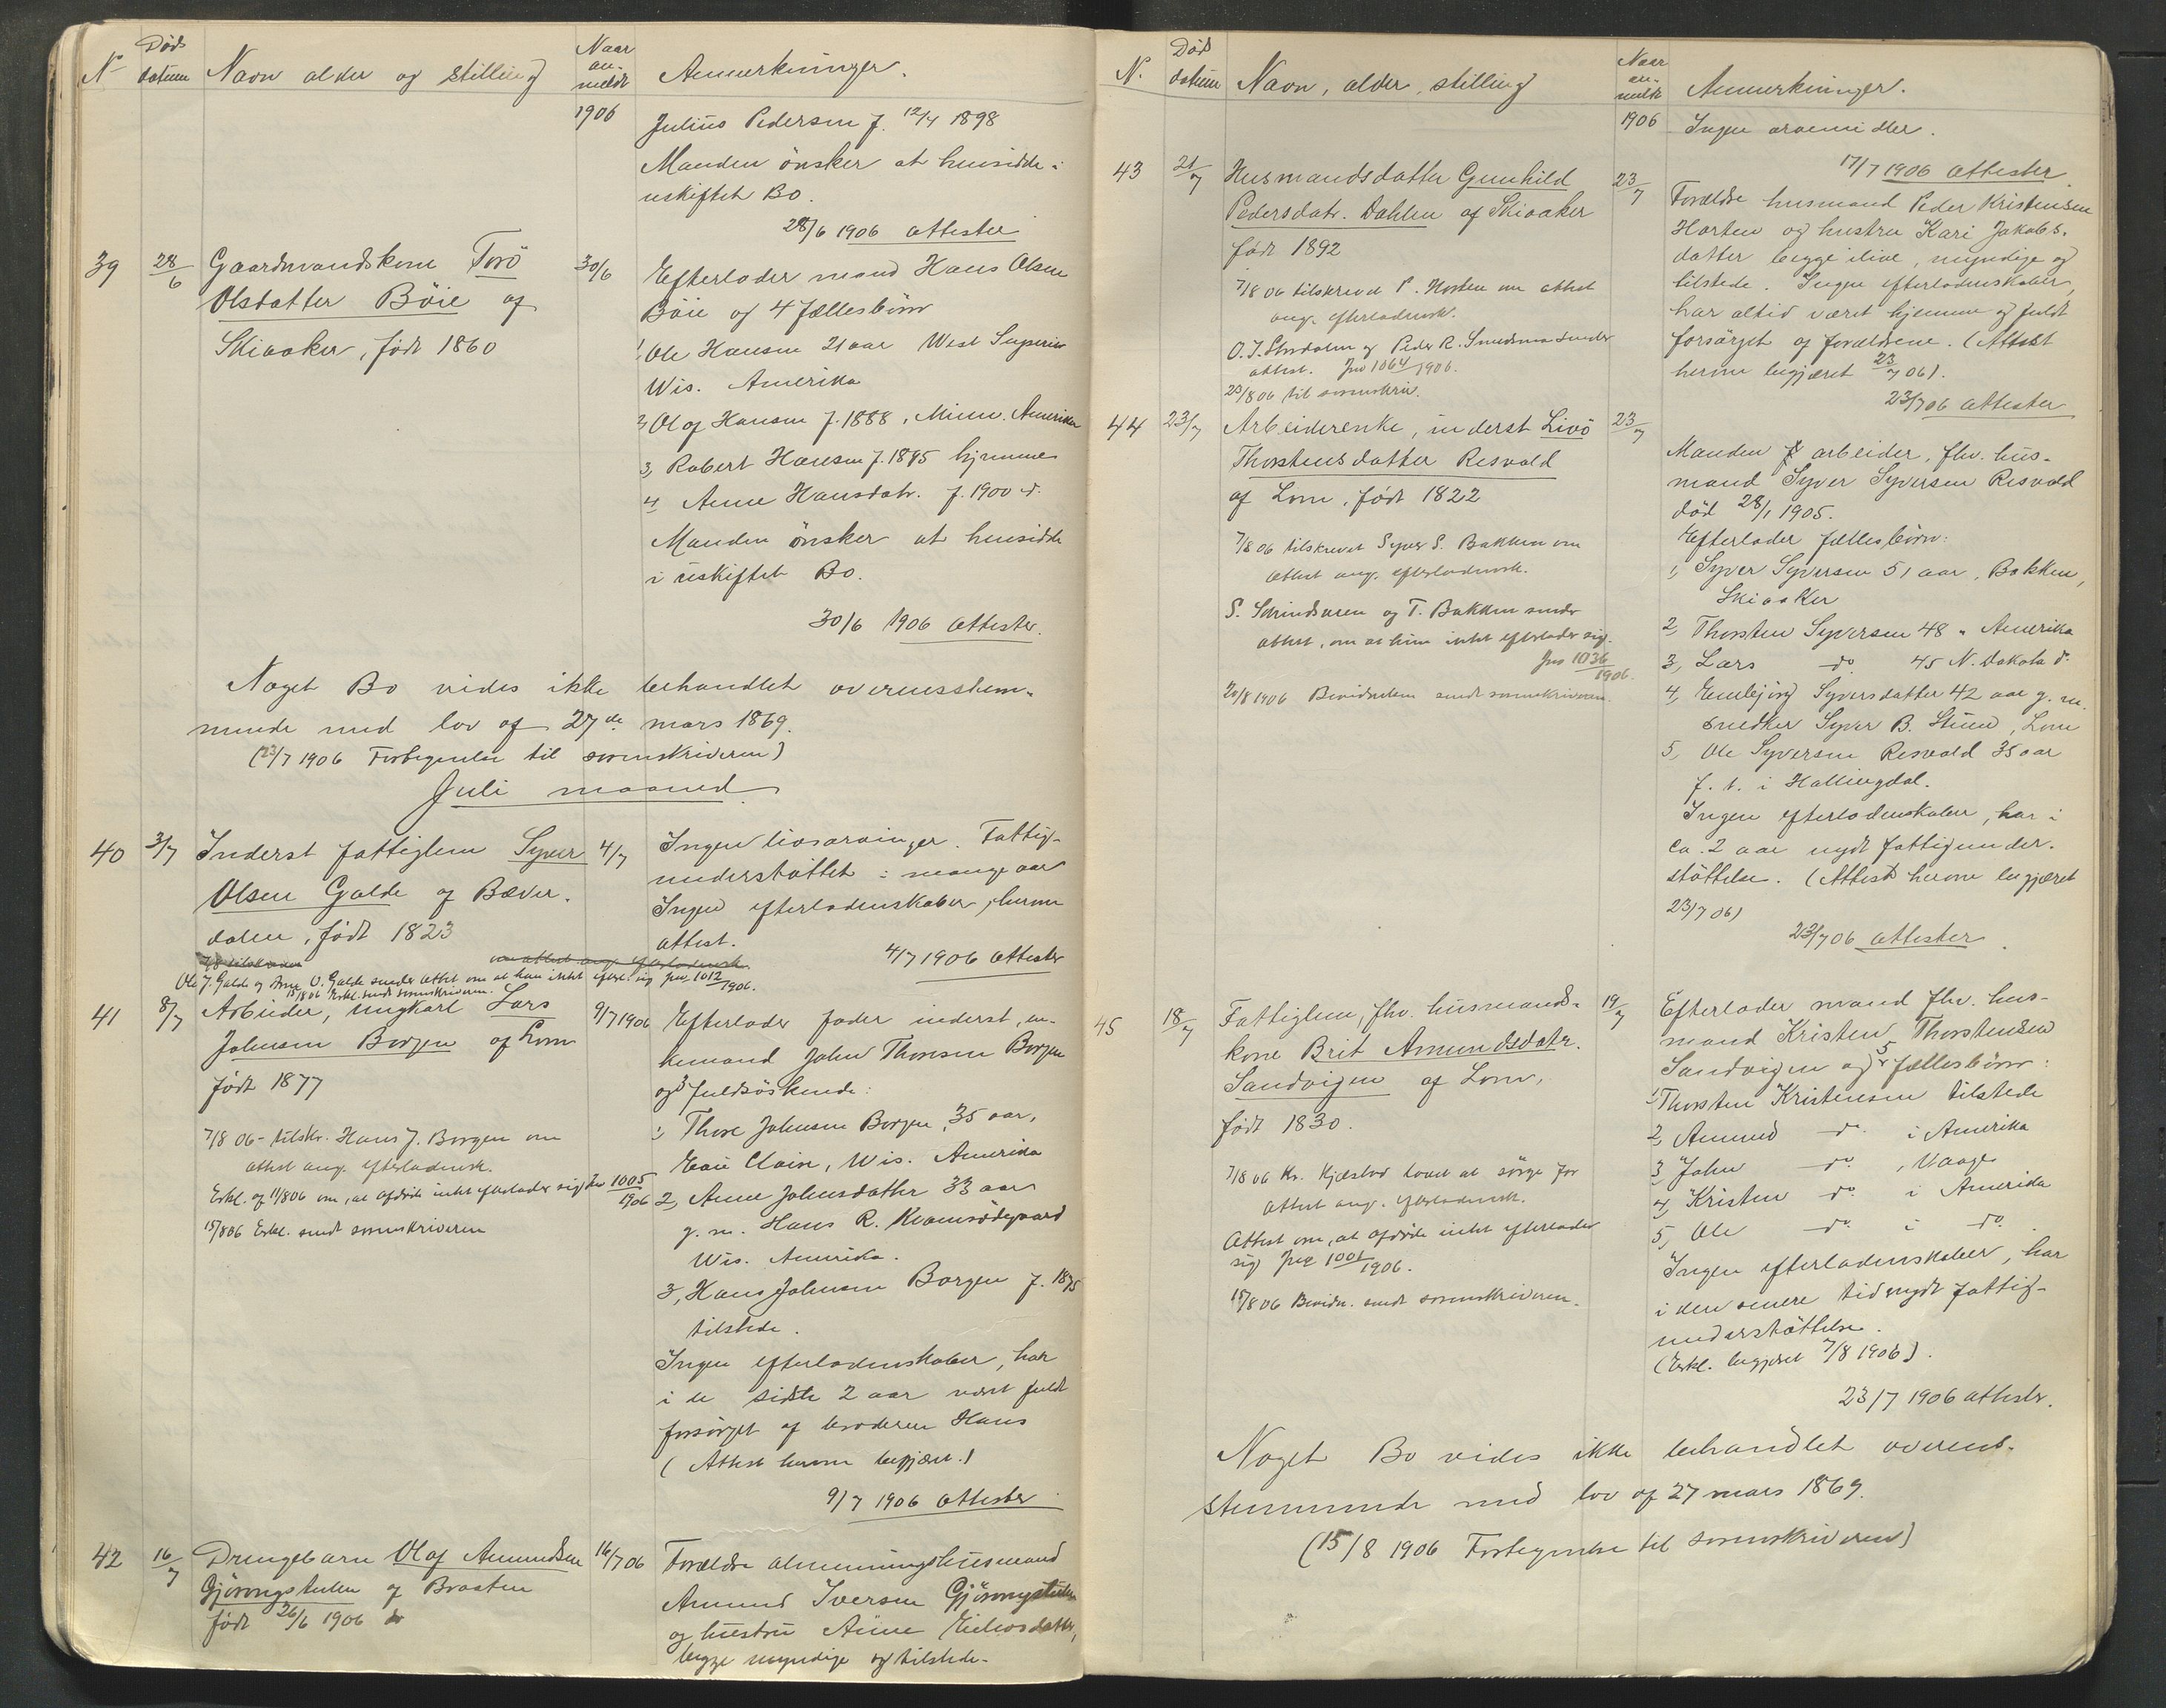 N Døds datum Navn alder og stilling Naar anmeldt Anmerkninger.
1906
Julius Pedersen f. 12/4 1898
Manden ønsker at hensidde i
uskiftet Bo.
28/6 1906 attester
39 28/6 Gaardmandskone Torö 30/6
Olsdatter Böie af
Skiaaker, født 1860
Efterlader mand Hans Olsen
Böie og 4 fællesbörn
1, Ole Hansen 21 aar West Superior
Wis. Amerika
2, Olof Hansen f. 1888, Minn. Amerika
3, Robert Hansen f. 1895 hjemme
4, Anne Hansdatr. f. 1900 do.
Manden ønsker at hensidde
i uskiftet Bo.
30/6 1906 attester.
Noget Bo vides ikke behandlet overensstem-
mende med lov af 27de mars 1869.
(23/7 1906 Fortegnelse til sorenskriveren)
Juli maaned
40 3/7 Inderst fattiglem Syver 4/7
Olsen Galde af Bæver-
dalen, født 1823
Ingen livsarvinger. Fattig-
understøttet i mange aar
Ingen efterladenskaber, herom
attest.
4/7 1906 attester
Ole J. Galde og Arne O. Galde sender attest om at han intet efterl. sig Jno 1012/1906.
15/8 06 Erkl. sendt sorenskriveren.
41 8/7 Arbeider, ungkarl Lars 9/7 1906
Johnsen Borgen af Lom
født 1877
7/8 06 - tilskr. Hans J. Borgen om
attest ang. efterladensk.
Erkl. af 11/8 06 om, at afdøde intet efterlader sig Jno 1005/1906
15/8 06 Erkl. sendt sorenskriveren
Efterlader fader inderst, en-
kemand John Thoresen Borgen
og 3 fuldsøskende:
1, Thore Johnsen Borgen, 35 aar,
Eau Claire, Wis. Amerika
2, Anne Johnsdatter 33 aar
g. m. Hans R. Kvamsødegaard
Wis. Amerika.
3, Hans Johnsen Borgen f. 1875
tilstede.
Ingen efterladenskaber, har
i de sidste 2 aar været fuldt
forsørget af broderen Hans
(Attest herom begjæret.)
9/7 1906 attester
42 16/7 Drengebarn Olaf Amundsen 16/7 06
Gjörongstuen af Braaten
født 26/6 1906
Forældre almenningshusmand
Amund Iversen Gjörongstuen
og hustru Anne
begge myndige og tilstede.
N. Død datum Navn, alder, stilling Naar anmeldt Anmerkninger.
1906 Ingen arvemidler.
17/7 1906 attester
43 21/7 Husmandsdatter Gunhild 23/7
Pedersdatr. Dahlen af Skiaaker
født 1892
7/8 06 tilskrevet P. Horten om attest
ang. efterladensk.
O. J. Stordalen og Peder R. sender
attest. Jno 1064/1906.
20/8 06 til sorenskriv.
Forældre husmand Peder Kristensen
Horten og hustru Kari Jakobs-
datter begge ilive, myndige og
tilstede. Ingen efterladenskaber,
har altid været hjemme og fuldt
forsørget af forældrene. (Attest
herom begjæret 23/7 06).
23/7 06 attester
44 23/7 Arbeiderenke, inderst Livö 23/7
Thorstensdatter Resvold
af Lom, født 1822
7/8 06 tilskrevet Syver S. Bakken om
attest ang. efterladensk.
S. og T. Bakken sender
attest, om at hun intet efterlader sig.
Jno 1036/1906.
20/8 1906 Bevidnelsen sendt sorenskriveren.
Manden arbeider, fhv. hus-
mand Syver Syversen Resvold
død 28/1 1905.
Efterlader fællesbörn:
1, Syver Syversen 51 aar, Bakken,
Skiaaker
2, Thorsten Syversen 48 " Amerika
3, Lars do. 45 N. Dakota do.
4, Syversdatter 42 aar g. m.
snedker Syver B. Stuen, Lom
5, Ole Syversen Resvold 35 aar
f. t. i Hallingdal.
Ingen efterladenskaber, har i
ca. 2 aar nydt fattigunder-
støttelse. (Attest herom begjæret
23/7 06)
23/7 06 attester
45 18/7 Fattiglem, fhv. husmands- 19/7
kone Brit Amundsdatr.
Sandvigen af Lom,
født 1830.
7/8 06 Kr. lovet at sørge for
attest ang. efterladensk.
Attest om, at afdøde intet efterlader
sig Jno 1001/1906.
15/8 06 Bevidn. sendt sorenskriveren.
Efterlader mand fhv. hus-
mand Kristen Thorstensen
Sandvigen og 5 fællesbörn:
1, Thorsten Kristensen tilstede
2, Amund do. i Amerika
3, John do. , Vaage
4, Kristen do. i Amerika
5, Ole do. i do.
Ingen efterladenskaber, har
i den senere tid nydt fattig-
understøttelse.
(Erkl. begjæret 7/8 1906).
23/7 1906 attester.
Noget Bo vides ikke behandlet overens-
stemmende med lov af 27 mars 1869.
(15/8 1906 Fortegnelse til sorenskriveren)